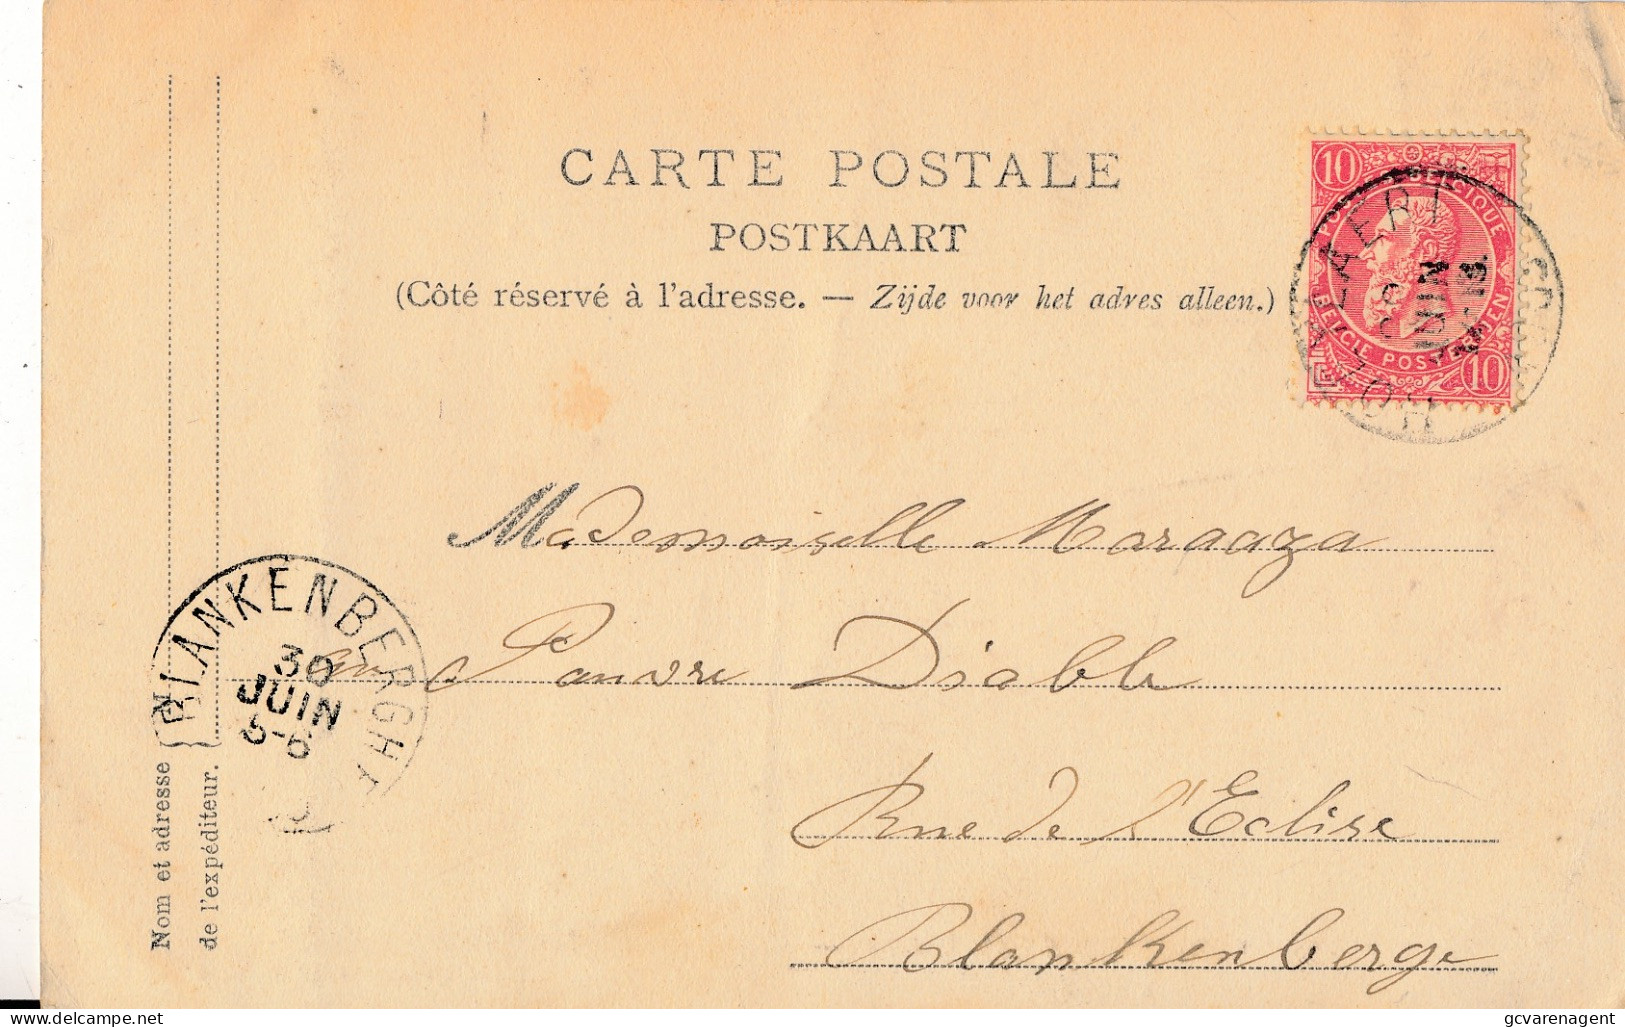 CARTE POSTALE
POSTKAART
(Côté réservé à l'adresse. — Zijde voor het adres alleen.)
10
BELGIQUE
BELGIE POSTERIJEN
10
JUIN
Mademoiselle Maraaza
au Pauvre Diable
Rue de l'Eclise
Blankenberge
BLANKENBERGHE
30
JUIN
5-6
Nom et adresse
de l'expéditeur.
gcvarenagent